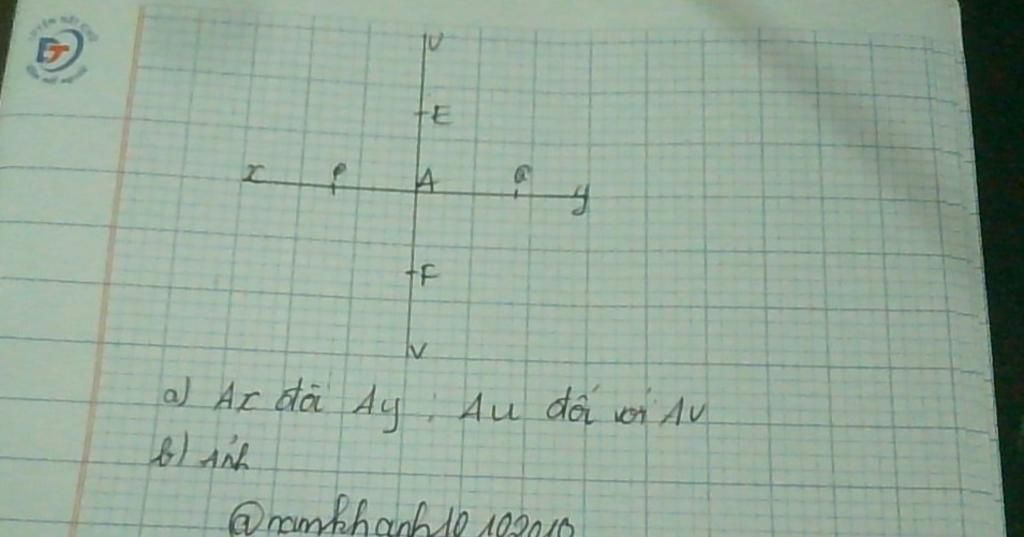 U
E
x P A Q y
F
V
a) Ax đối Ay ; Au đối với AV
b) Ảnh